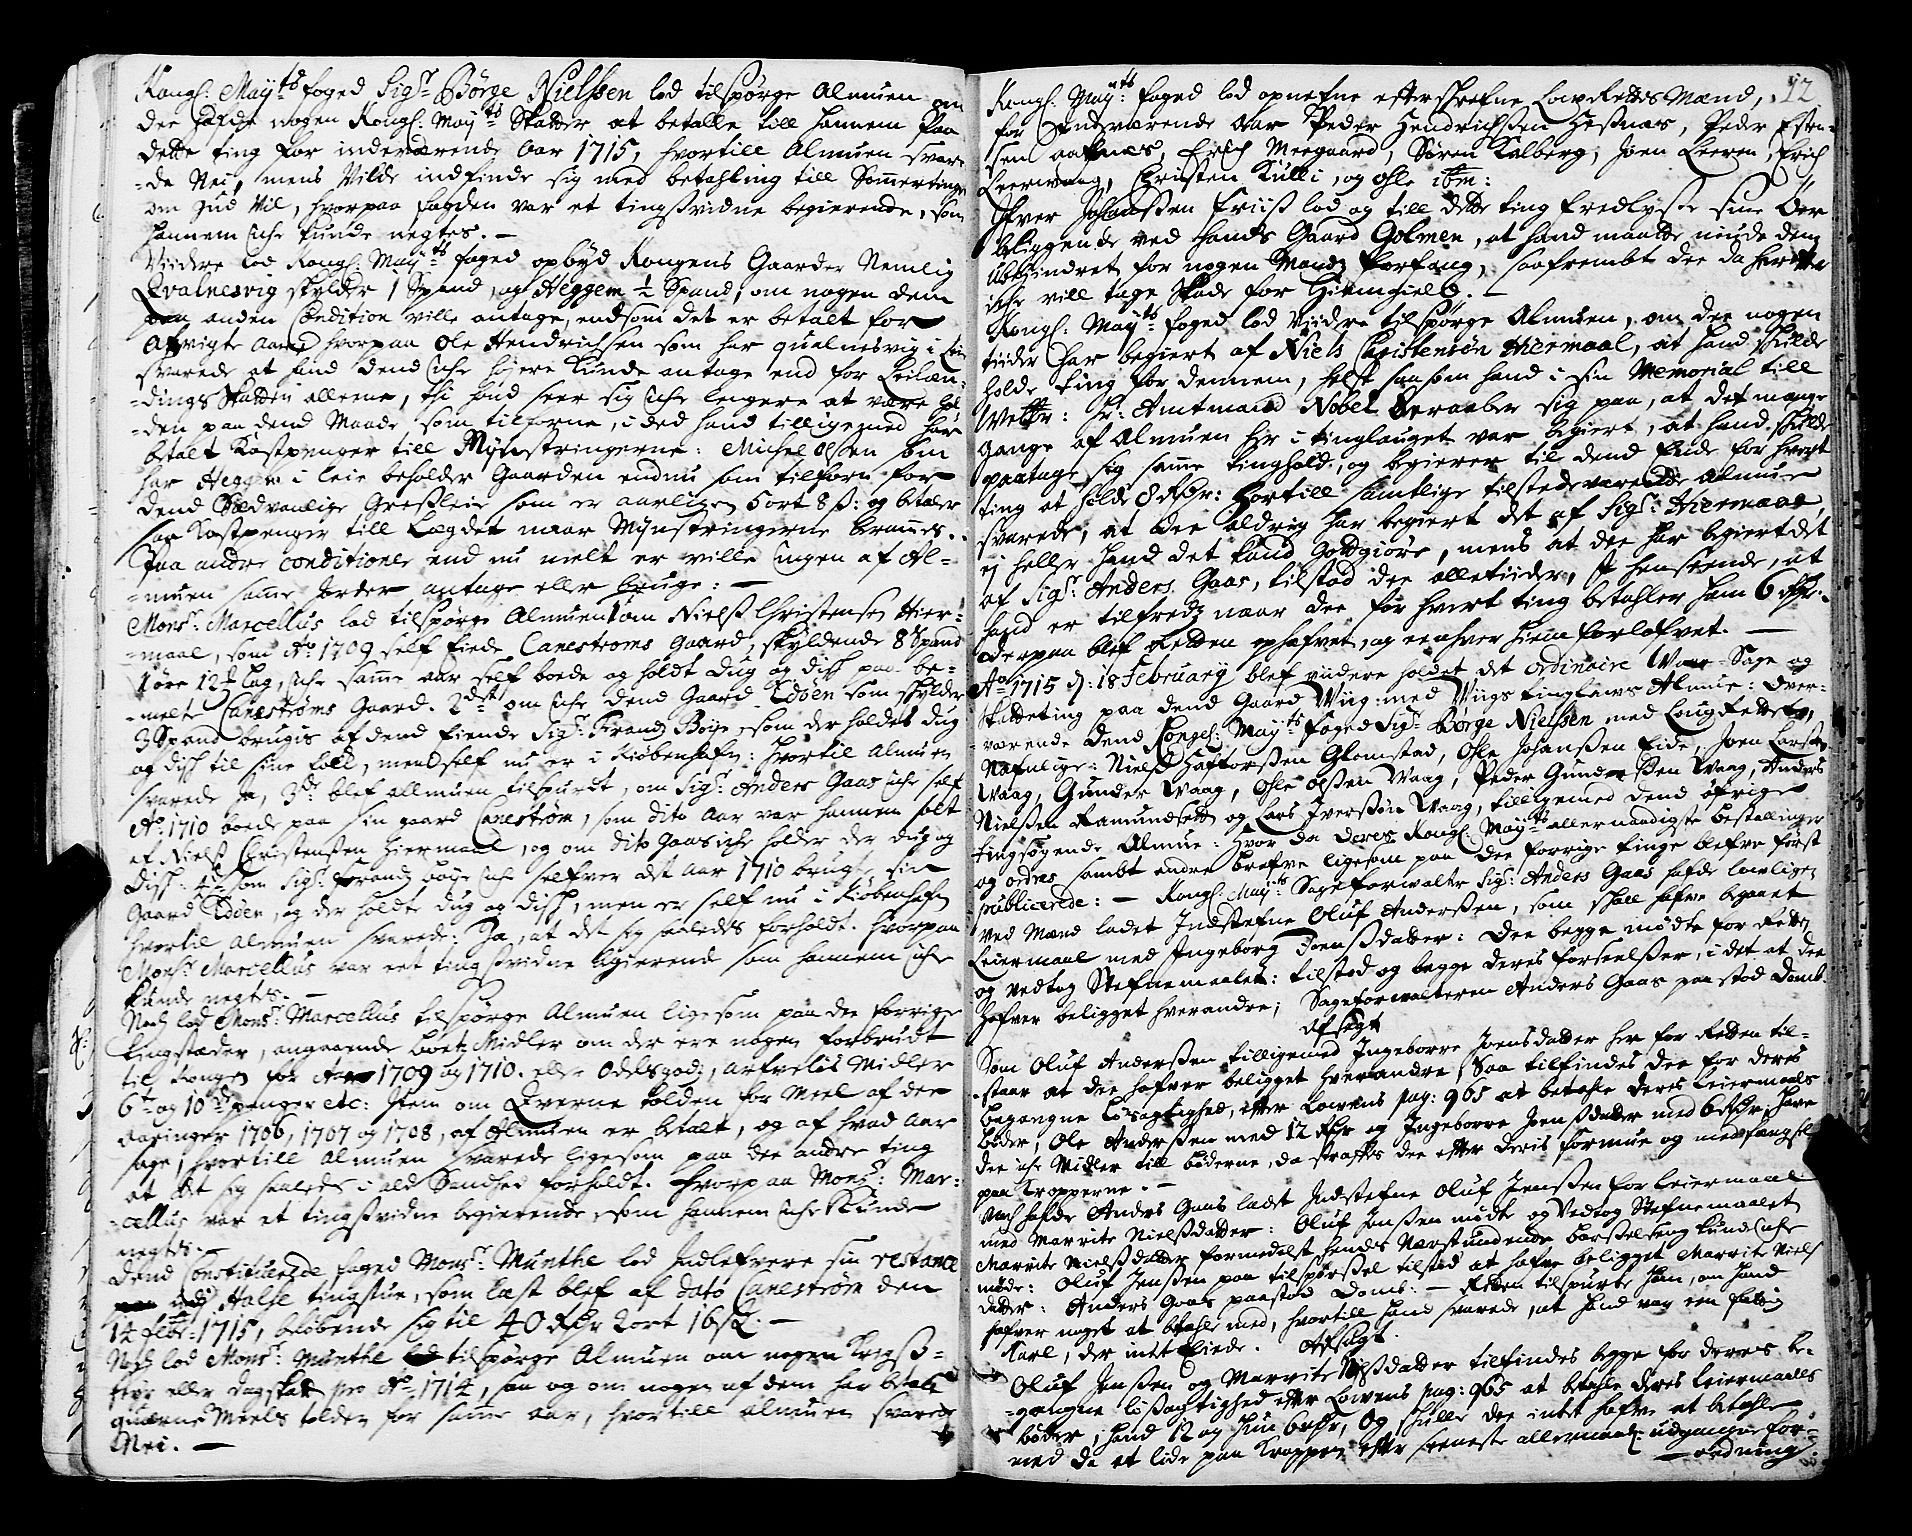 Kongl: Mayts foged Sigr Börge Nielssen lod tilspörge Almuen om
dee hafde nogen Kongl: Mayts Skatter at betalle till hannem paa
dette ting for inderværende Aar 1715, hvortill Almuen svare-
-de Nei, mens Vilde indfinde sig med betahling till Sommertinget
om Gud Vil, hvorpaa fogden var et tingsvidne begierende, som
hannem iche kunde negtes. -
Videre lod Kongl: Mayts foged opbyd Kongens Gaarder Nemlig
Qvalnesvig skylder 1 Spand, og Heggem ½ Spand, om nogen dem
anden Condition ville antage, end som det er betalt for
Afvigte Aar hvorpaa Ole Hendrichsen som har Qualnesvig i
svarede at hand dend iche höjere kunde antage end for Leilæn-
-dings Skatten allene, thi hand seer sig iche lengere at være hol-
-den paa dend Maade, som tilforne, i ded hand tilligemed har
betalt Kostpenger till Mynstringerne: Michel Olsen som
har Heggem i leie beholder Gaarden endnu som tilforn for
dend Sædvanlige Græsleie som er aarligen 5 ort 8 s: og betaler
saa Kostpenger till Lægdet naar Mynstringerne krames.
Paa andre conditioner end nu melt er ville ingen af Al-
-muen samme Jorder antage eller bruge: -
Monsr: Marcellus lod tilspörge Almuen 1 om Niels Christensen Hier-
-maal, som Ao 1709 self Eiede Canestroms Gaard, skyldende 8 Spand
1 öre 12 Lag, iche samme aar self boede og holdt Dug og disk paa be-
-melte Canestrøms Gaard. 2det om iche dend Gaard Edöen som skylder
3 Spand brugis af dend Eiende Sigr: Frandz Boye, som der holder dug
og disk til sine folk, mens self nu er i Kiöbenhafn: Hvortil Almuen
svarede Ja, 3de blef Allmuen tilspurdt, om Sigr: Anders Gaas iche self
Ao 1710 boede paa sin gaard Canestrøm, som dito Aar var hannem solt
af Niels Christensen Hiermaal, og om dito Gaas iche holder der dug og
disk: 4de som Sigr: Frandz Boye iche selfver det Aar 1710 brugte sin
Gaard Edöen, og der holdte dug og disk, men er self nu i Kiöbenhafn
hvortil Almuen svarede: Ja, at det sig saaledes forholdt. Hvorpaa
Monsr: Marcellus var eet tingsvidne begierende som hannem iche
kunde negtes. -
Noch lod Monsr: Marcellus tilspörge Almuen ligesom paa dee forrige
tingstæder, angaaende Boetz Midler om der ere nogen forbrudt
til Kongen for Aar 1709 og 1710. eller Odelsgodz, Arfvelös Midler
6te og 10de penger etc: Item om Qverne tolden for Meel af dee
Aaringer 1706, 1707 og 1708, af Almuen er betalt, og af hvad Aar
sage, hvortill Almuen svarede ligesom paa dee andre ting
at det sig saaleds i ald Sandhed forholdt. Hvorpaa Monsr: Mar-
-cellus var et tingsvidne begierende, som hannem iche Kunde
negtes. -
Dend Constituerede foged Monsr: Munthe lod Indlefvere sin restance
Halse tingstue, som læst blef af dato Canestrøm den
14 febr: 1715, belöbende sig til 40 Rdr 2 ort 16 s. -
Noch lod Monsr: Munthe tilspörge Almuen om nogen Krigs-
styr eller dagskatt pro Ao 1714, saa og om nogen af dem har betalt
quærne Meels tolden for samme Aar, hvortill Almuen svarede
Nei. -
12
Kongl: Mayts: foged lod opnefne efterskrefne LaugRettes Mænd,
for indeværende Aar Peder Hendrichsen Hesnæs, Peder Esten-
sen Aaknæs, Erich Meegaard, Sören Kalberg, Joen Leeren, Erich
Leervaag, Christen Külli, og Ohle ibm:
Ifver Johansen Friis lod og till dette ting fredlyse sine Öer
beliggende ved hands Gaard Golmen, at hand maatte niude dem
ubehindret for nogen Mands Forfang, saafremt dee da herefter
iche vill tage Skade for Hiemgield. -
Kongl: Mayts: foged lod Videre tilspörge Almuen, om dee nogen
tiider har begiert af Niels Christensön Hiermaal, at hand skulde
holde ting for dennem, helst saasom hand i sin Memorial till
Welbr: Hr: Amtmand Nobel beraaber sig paa, at det mange
gange af Almuen her i tinglauget var begiert, at hand skulde
paatage sig samme tinghold, og begierer til dend Ende for hvert
ting at holde 8 Rdr: Hvortill samtlige tilstedeværende Almue
svarede, at dee aldrig har begiert det af Sigr: Hiermaal,
ej heller hand det kand Godtgiöre, mens at dee har begiert det
af Sigr: Anders Gaas, tilstod dee alletiider, i henseende, at
hand er tilfredz naar dee for hvert ting betahler ham 6 Rdr:
derpaa blef Retten ophafvet, og eenhver hiem forlofvet. -
Ao 1715 d: 18 February blef videre holdet det ordinaire Waar-Sage og
Skatteting paa dend Gaard Wiig med Wiigs tinglaws Almue: Over-
værende dend Kongel: Mayts foged Sigr: Börge Nielssen med LaugRettet,
Nafnlige: Niels Haftorsen Glomstad, Ohle Johansen Eide, Joen Larsen
Waag, Gunder Waag, Ohle Olsen Waag, Peder Gundersen Waag, Anders
Nielsen Ramundset og Lars Iversön Waag, tilligemed dend öfrige
tingsögende Almue: Hvor da deres Kongl: Mayts allernaadigste bestallinger
og ordres sambt andre brefve ligesom paa dee forrige tinge blefve först
publicerede: - Kongl: Mayts Sageforwalter Sigr: Anders Gaas hafde lowligen
ved Mænd ladet Indstefne Oluf Andersen, som skall hafve begaaet
Leiermaal med Ingeborg Joensdatter: Dee begge mödte for Retten,
og vedtog Stefnemaalet: tilstod og begge deres forseelser, i det at dee
hafver beligget hverandre; Sageforwalteren Anders Gaas paastod Domb.
Afsagt
Som Oluf Andersen tilligemed Ingeborre Joensdatter her for Retten til-
-staar at dee hafver beligget hverandre, Saa tilfindes dee for deres
begangne lösagtighed, efter Lowens pag: 965 at betahle deres Leiermaals
böder, Ole Andersen med 12 Rdr og Ingeborre Joensdatter med 6 Rdr: hare
dee iche Midler till böderne, da straffes dee efter deris formue og med fængsel
paa Kropperne. -
Noch hafde Anders Gaas ladet Indstefne Oluf Jensen for Leiermaal
med Marrite Nielsdatter: Oluf Jensen mödte og Vedtog Stefnemaalet
Marrite Nielsdatter formedelst hendes Nærstundende Barselseng kunde iche
möde: Oluf Jensen paa tilspörsel tilstod at hafve beligget Marrite Niels
datter: Anders Gaas paastod Domb: - Retten tilspurte ham, om hand
hafver noget at betahle med, hvortill hand svarede, at hand var een fattig
Karl, der intet Eiede. Afsagt.
Oluf Jensen og Marrite Nielsdatter tilfindes begge for deres be-
-gangne lösachtighed efter Lowens pag: 965 at betahle deres Leiermaals
böder, hand 12 og hun 6 Rdr, Og skulle dee intet hafve at betahle
med da at lide paa Kroppen efter seeneste allernaadigst udgangne for-
-ordning